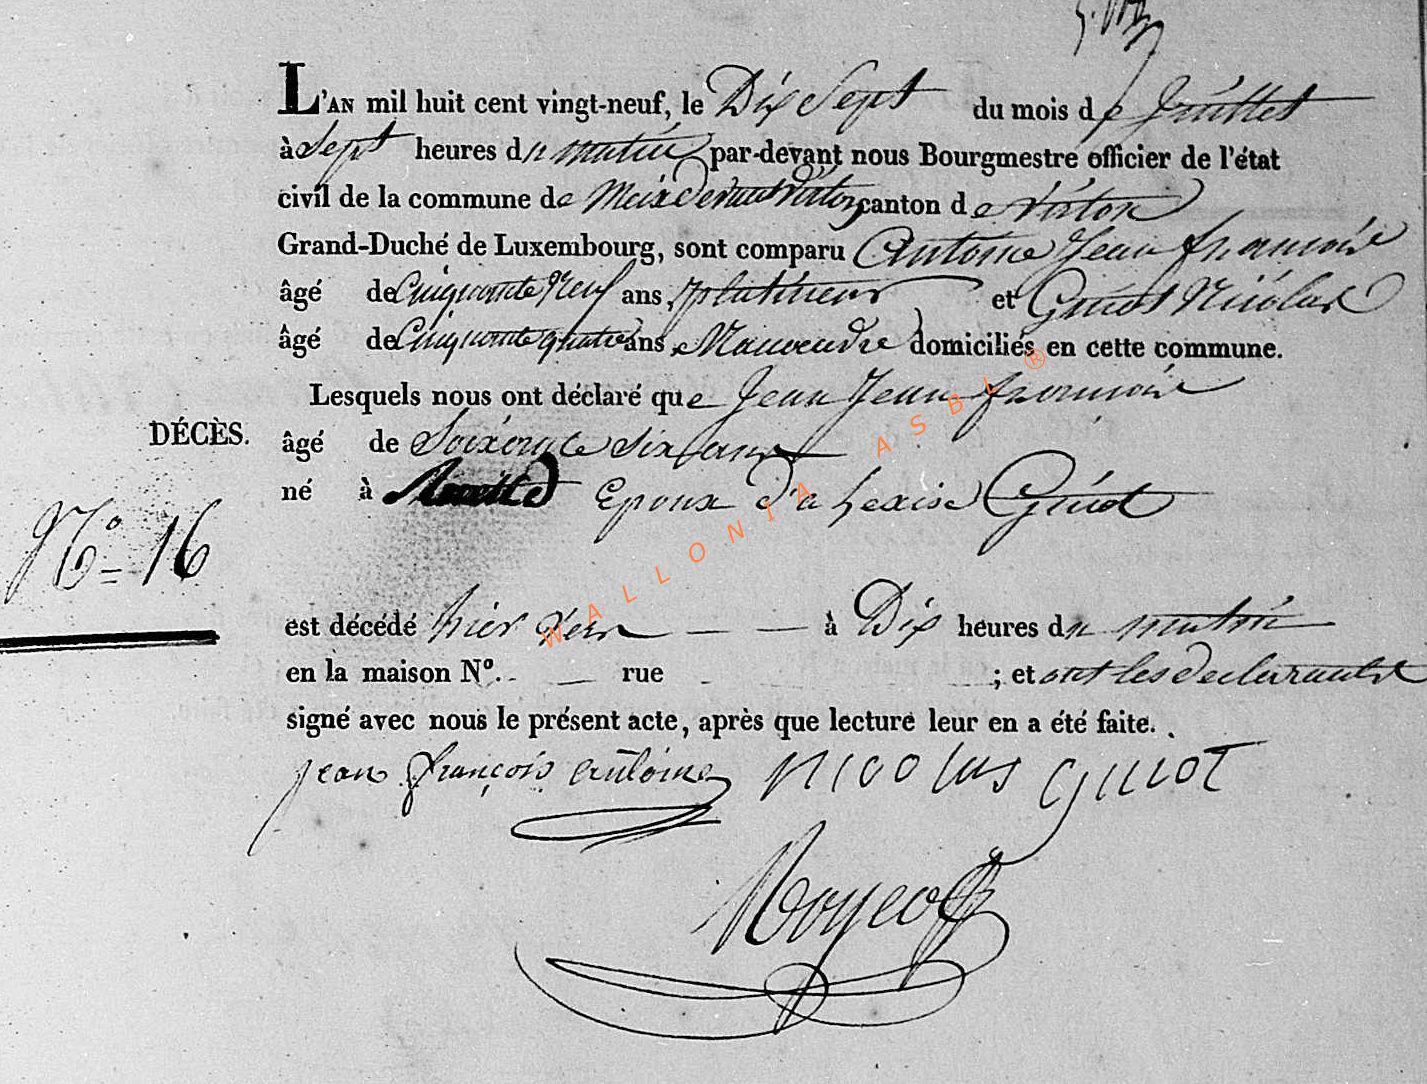 L'AN mil huit cent vingt-neuf, le Dix Sept du mois de Juillet
à Sept heures du matin par-devant nous Bourgmestre officier de l'état
civil de la commune de Meix devant Virton canton de Virton
Grand-Duché de Luxembourg, sont comparu Antoine Jean francois
âgé de Cinquante Neuf ans, platineur et Guiot Nicolas
âgé de Cinquante quatre ans, Manoeuvre domiciliés en cette commune.
Lesquels nous ont déclaré que Jean Jean francois
DÉCÈS.
âgé de Soixante six ans
né à Epoux d'a Guiot
N° 16
est décédé hier à Dix heures du matin
en la maison N°. rue ; et ont les declarants
signé avec nous le présent acte, après que lecture leur en a été faite.
jean françois antoine Nicolas Guiot
WALLONIA ASBL ®